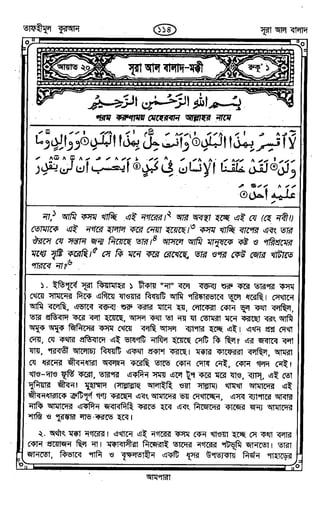 তাফহীমুল কুরআন
১১৪
সূরা আল বালাদ
আয়াত ২০
সূরা আল বালাদ-মক্কী
রুকূ’ ১
بِسْمِ اللهِ الرَّحْمٰنِ الرَّحِيْمِ
পরম করুণাময় মেহেরবান আল্লাহর নামে
لَا أُقْسِمُ بِهٰذَا الْبَلَدِ وَأَنْتَ حِلٌّ بِهٰذَا الْبَلَدِ وَوَالِدٍ وَّمَا
وَلَدَ لَقَدْ خَلَقْنَا الْإِنْسَانَ فِي كَبَدٍ أَيَحْسَبُ أَنْ لَّنْ يَّقْدِرَ
عَلَيْهِ أَحَدٌ
না,১ আমি কসম খাচ্ছি এই নগরের।২ আর অবস্থা হচ্ছে এই যে (হে নবী!)
তোমাকে এই নগরে হালাল করে নেয়া হয়েছে।৩ কসম খাচ্ছি বাপের এবং তার
ঔরসে যে সন্তান জন্ম নিয়েছে তার।৪ আসলে আমি মানুষকে কষ্ট ও পরিশ্রমের
মধ্যে সৃষ্টি করেছি।৫ সে কি মনে করে রেখেছে, তার ওপর কেউ জোর খাটাতে
পারবে না?৬
১. ইতিপূর্বে সূরা কিয়ামাহর ১ টীকায় "না" বলে বক্তব্য শুরু করে তারপর কসম
খেয়ে সামনের দিকে এগিয়ে যাওয়ার বিষয়টি আমি পরিষ্কারভাবে তুলে ধরেছি। সেখানে
আমি বলেছি, এভাবে বক্তব্য শুরু করার মানে হয়, লোকেরা কোন ভুল কথা বলছিল,
তার প্রতিবাদ করে বলা হয়েছে, আসল কথা তা নয় যা তোমরা মনে করছো বরং আমি
অমুক অমুক জিনিসের কসম খেয়ে বলছি আসল ব্যাপার হচ্ছে এই। এখন প্রশ্ন দেখা
দেয়, যে কথার প্রতিবাদে এই ভাষণটি নাযিল হয়েছে সেটি কি ছিল? এর জবাবে বলা
যায়, পরবর্তী আলোচ্য বিষয়টি একথা প্রকাশ করছে। মক্কার কাফেররা বলছিল, আমরা
যে ধরনের জীবনধারা অবলম্বন করেছি তাতে কোন দোষ নেই, কোন গলদ নেই।
খাও-দাও ফূর্তি করো, তারপর একদিন সময় এলে টুপ করে মরে যাও, ব্যাস্, এই তো
দুনিয়ার জীবন। মুহাম্মাদ (সাল্লাল্লাহু আলাইহি ওয়া সাল্লাম) খামখা আমাদের এই
জীবনধারাকে ত্রুটিপূর্ণ গণ্য করছেন এবং আমাদের ভয় দেখাচ্ছেন, এসব ব্যাপারে আবার
নাকি আমাদের একদিন জবাবদিহি করতে হবে এবং নিজেদের কাজের জন্য আমাদের
শাস্তি ও পুরস্কার লাভ করতে হবে।
২. অর্থাৎ মক্কা নগরের। এখানে এই নগরের কসম কেন খাওয়া হচ্ছে সে কথা বলার
কোন প্রয়োজন ছিল না। মক্কাবাসীরা নিজেরাই তাদের নগরের পটভূমি জানতো। তারা
জানতো, কিভাবে পানি ও বৃক্ষলতাহীন একটি ধূসর উপত্যকায় নির্জন পাহাড়ের
আমপারা